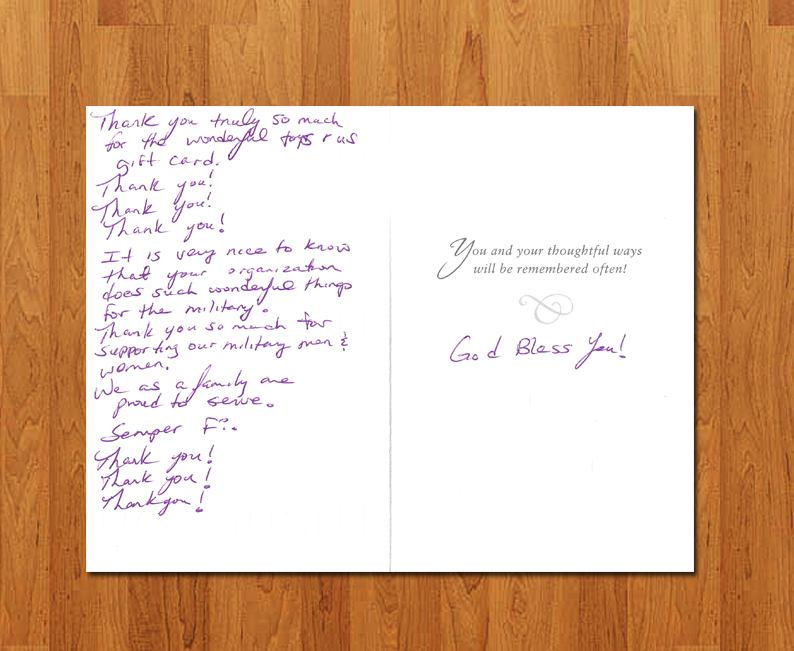 Thank you truly so much
for the wonderful toys r us
gift card.
Thank you!
Thank you!
Thank you!
It is very nice to know
that your organization
does such wonderful things
for the military.
Thank you so much for
supporting our military men &
women.
We as a family are
proud to serve.
Semper Fi.
Thank you!
Thank you!
Thank you!
You and your thoughtful ways
will be remembered often!
God Bless You!